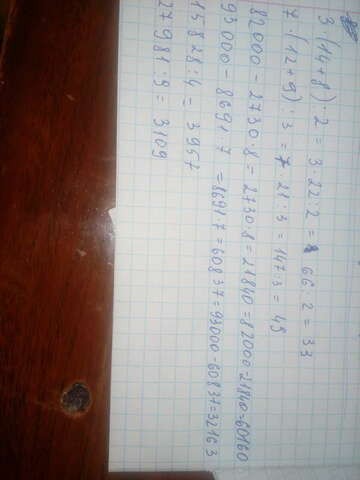 3·(14+8):2=3·22:2=66:2=33
7·(12+9):3=7·21:3=147:3=49
82000-2730·8=2730·8=21840=82000-21840=60160
93000-8691·7=8691·7=60837=93000-60837=32163
15828:4=3957
27981:9=3109